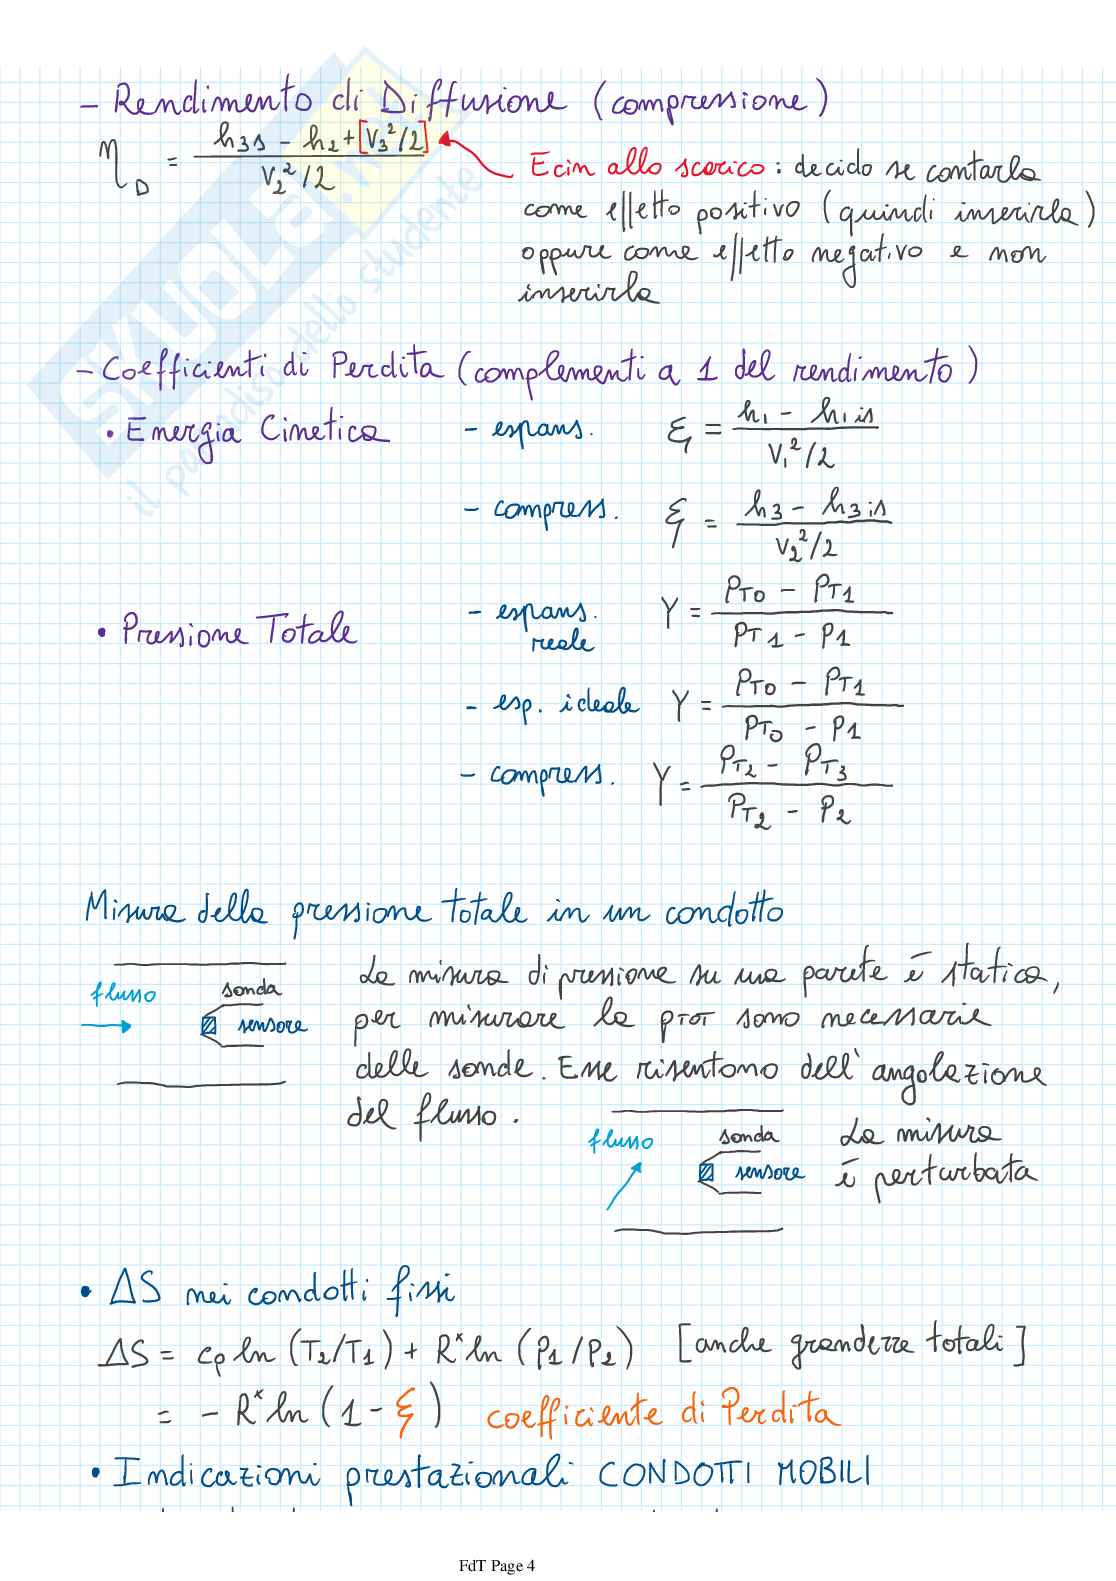 - Rendimento di Diffusione (compressione)
η_D = (h3s - h2 + [V3²/2]) / (V2²/2)
Ecin allo scarico: decido se contarla
come effetto positivo (quindi inserirla)
oppure come effetto negativo e non
inserirla
- Coefficienti di Perdita (complementi a 1 del rendimento)
• Energia Cinetica
- espans. ξ = (h1 - h1is) / (V1²/2)
- compress. ξ = (h3 - h3is) / (V2²/2)
• Pressione Totale
- espans. reale Y = (PT0 - PT1) / (PT1 - P1)
- esp. ideale Y = (PT0 - PT1) / (PT0 - P1)
- compress. Y = (PT2 - PT3) / (PT2 - P2)
Misura della pressione totale in un condotto
flusso
sonda
sensore
La misura di pressione su una parete è statica,
per misurare la pTOT sono necessarie
delle sonde. Esse risentono dell'angolazione
del flusso.
flusso
sonda
sensore
La misura
è perturbata
• ΔS nei condotti fissi
ΔS = cp ln (T2/T1) + R* ln (P1/P2) [anche grandezze totali]
= - R* ln (1 - ξ) coefficiente di Perdita
• Indicazioni prestazionali CONDOTTI MOBILI
FdT Page 4
SKUOLA.net
il paradiso dello studente